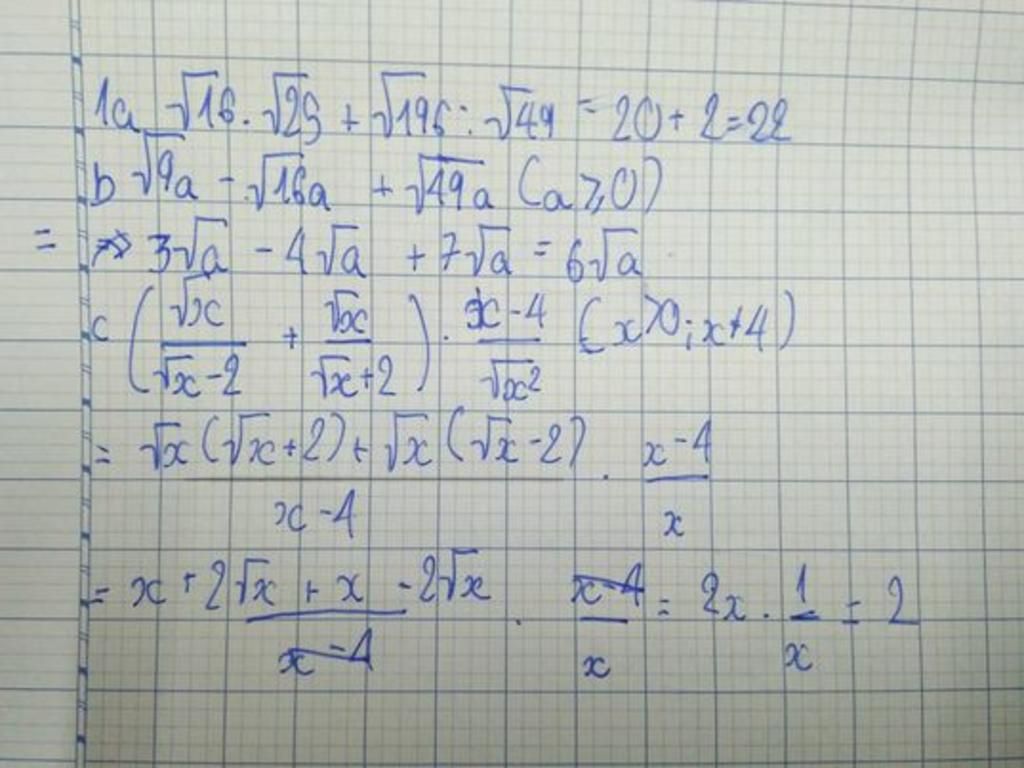 1a √16 . √25 + √196 : √49 = 20 + 2 = 22
b √9a - √16a + √49a (a ≥ 0)
= 3√a - 4√a + 7√a = 6√a
c (√x/(√x-2) + √x/(√x+2)) . (x-4)/√x² (x>0; x≠4)
= (√x(√x+2) + √x(√x-2))/(x-4) . (x-4)/x
= (x + 2√x + x - 2√x)/(x-4) . (x-4)/x = 2x . 1/x = 2